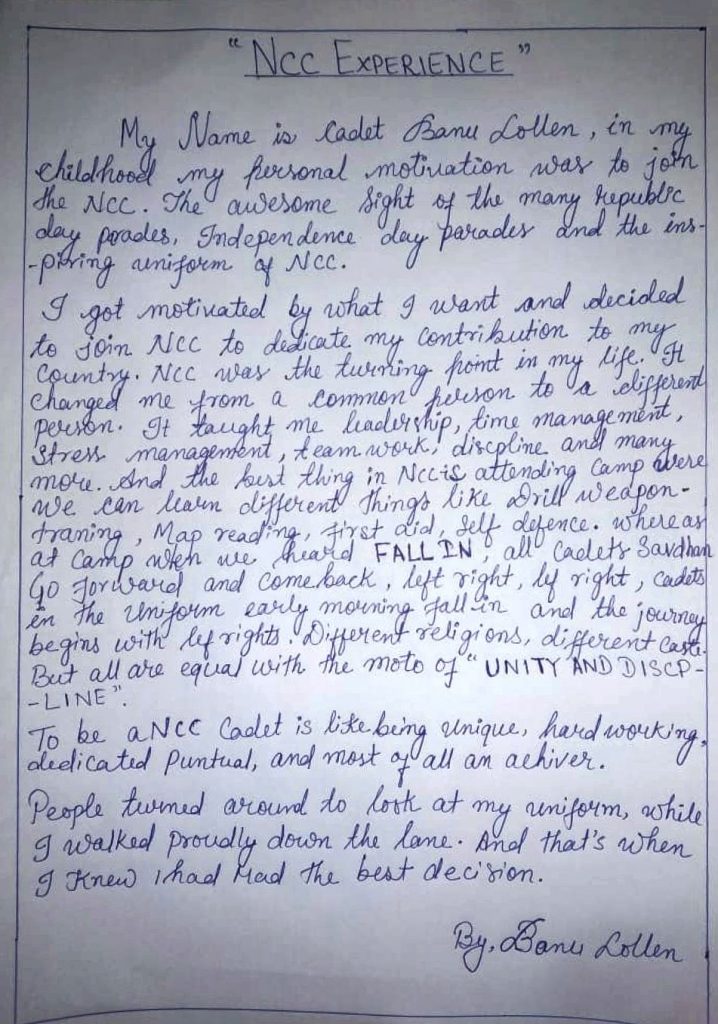 "NCC EXPERIENCE"
My Name is Cadet Banu Lollen, in my
childhood my personal motivation was to join
the NCC. The awesome sight of the many Republic
day prades, Independence day parades and the ins-
-piring uniform of NCC.
I got motivated by what I want and decided
to join NCC to dedicate my contribution to my
Country. NCC was the turning point in my life. It
changed me from a common person to a different
person. It taught me leadership, time management,
Stress management, team work, discpline and many
more. And the best thing in NCC is attending Camp were
we can learn different things like Drill weapon-
traning, Map reading, first aid, self defence. whereas
at Camp when we heard FALL IN, all Cadets Savdhan
Go forward and come back, left right, lef right, Cadets
in the Uniform early morning fall in and the journey
begins with lef rights. Different religions, different caste.
But all are equal with the moto of "UNITY AND DISCP-
-LINE".
To be a NCC Cadet is like being unique, hard working,
dedicated Puntual, and most of all an achiver.
People turned around to look at my uniform, while
I walked proudly down the lane. And that's when
I Knew i had mad the best decision.
By, Banu Lollen